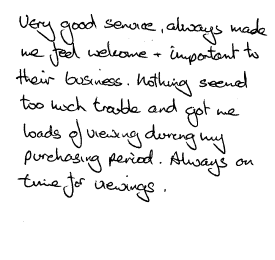 Very good service, always made
me feel welcome + important to
their business. Nothing seemed
too much trouble and got me
loads of viewing during my
purchasing period. Always on
time for viewings.